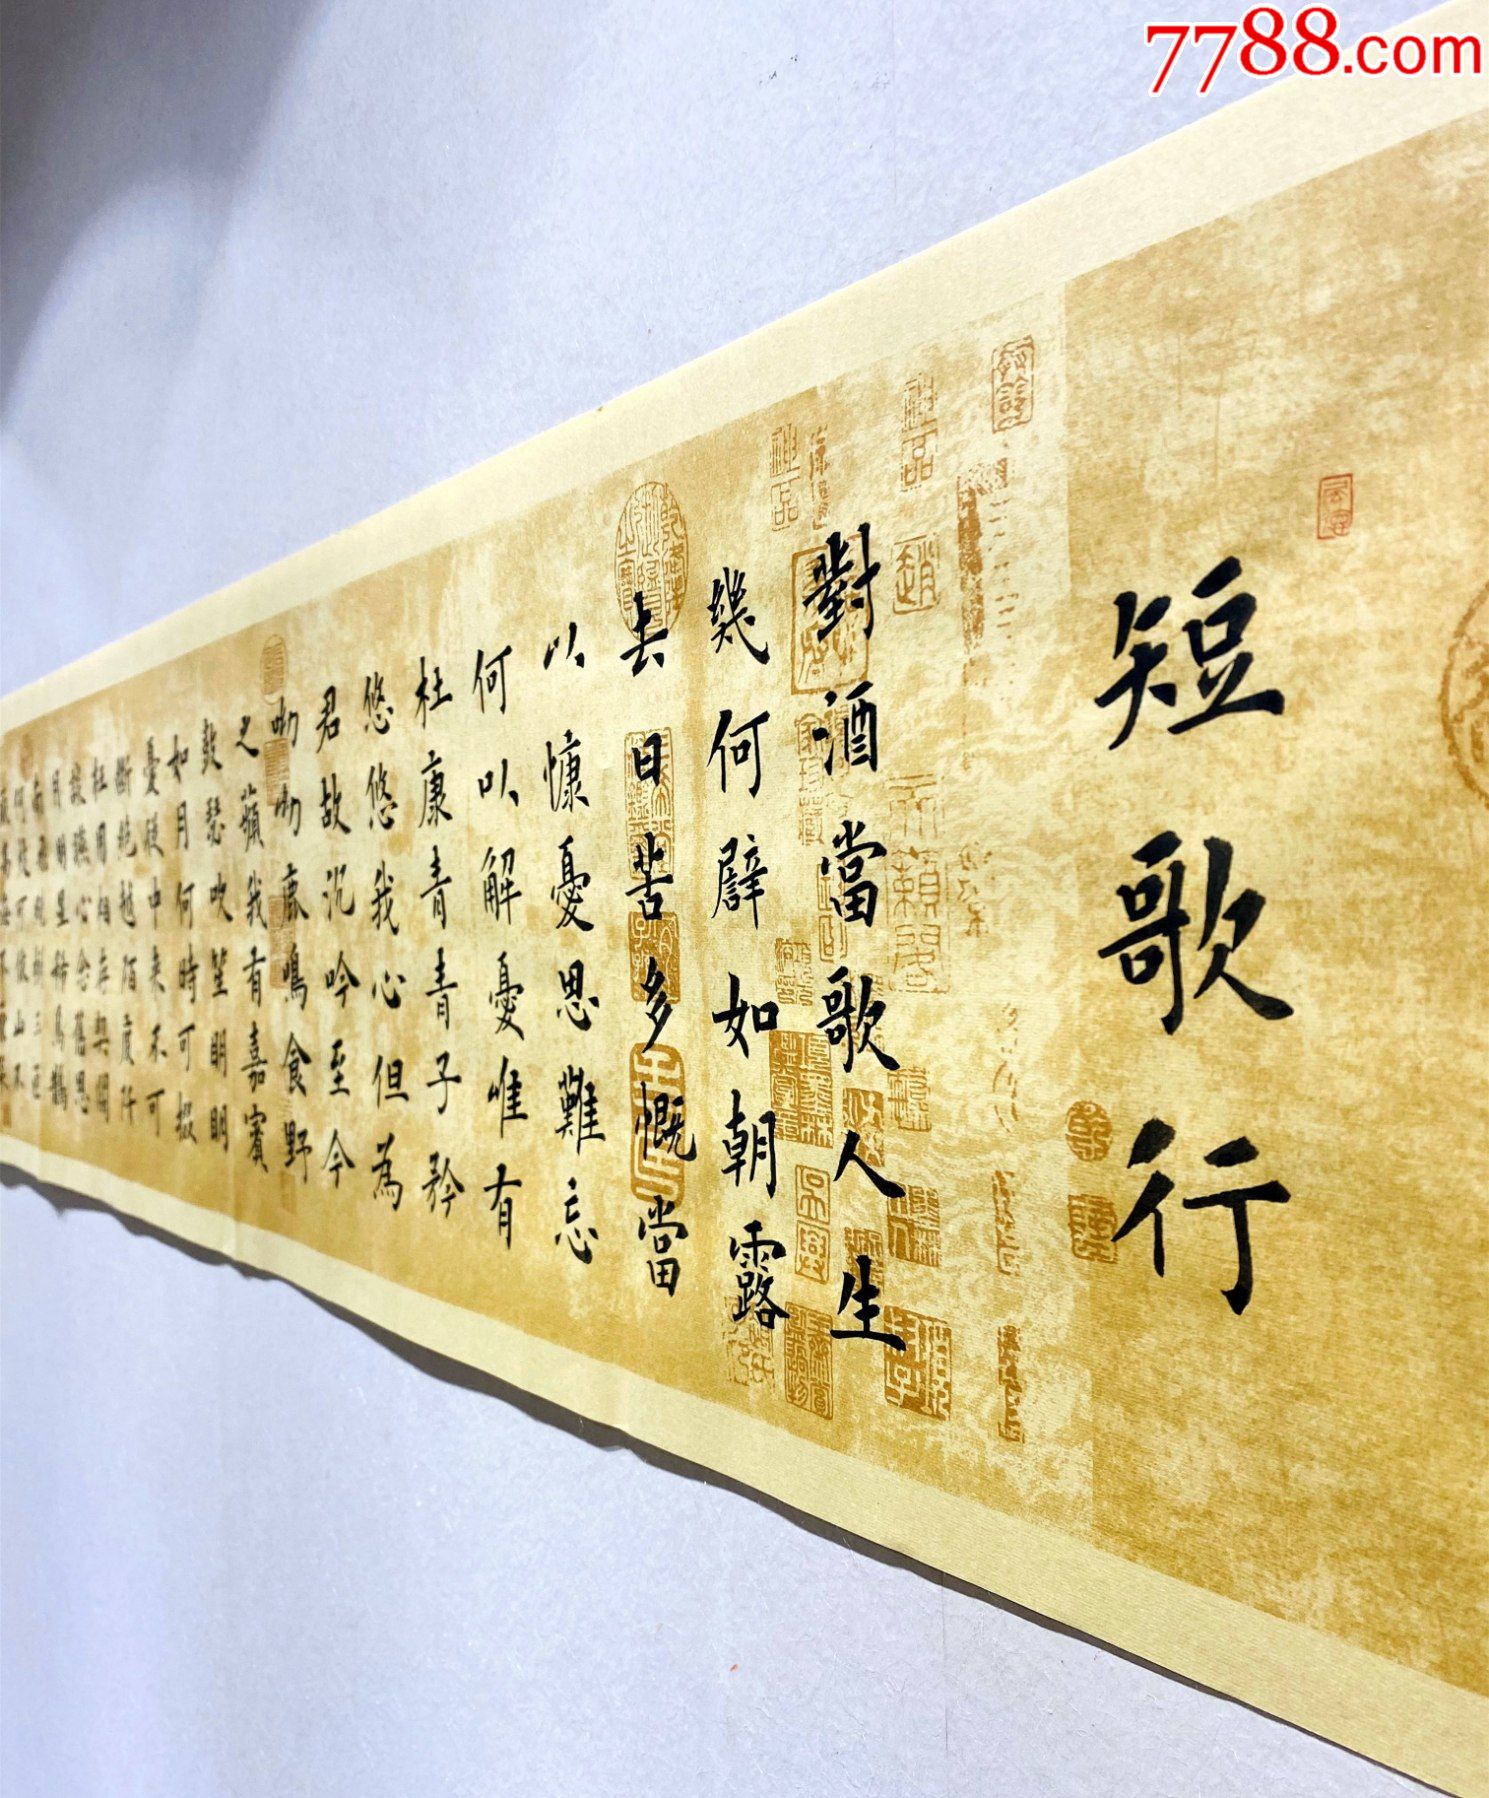 7788.com
短歌行
對酒當歌人生
幾何譬如朝露
去日苦多慨當
以慷憂思難忘
何以解憂唯有
杜康青青子矜
悠悠我心但為
君故沉吟至今
呦呦鹿鳴食野
之蘋我有嘉賓
鼓瑟吹笙明明
如月何時可掇
憂從中来不可
斷絶越陌度阡
枉用相存契闊
談讌心念舊恩
月明星稀烏鵲